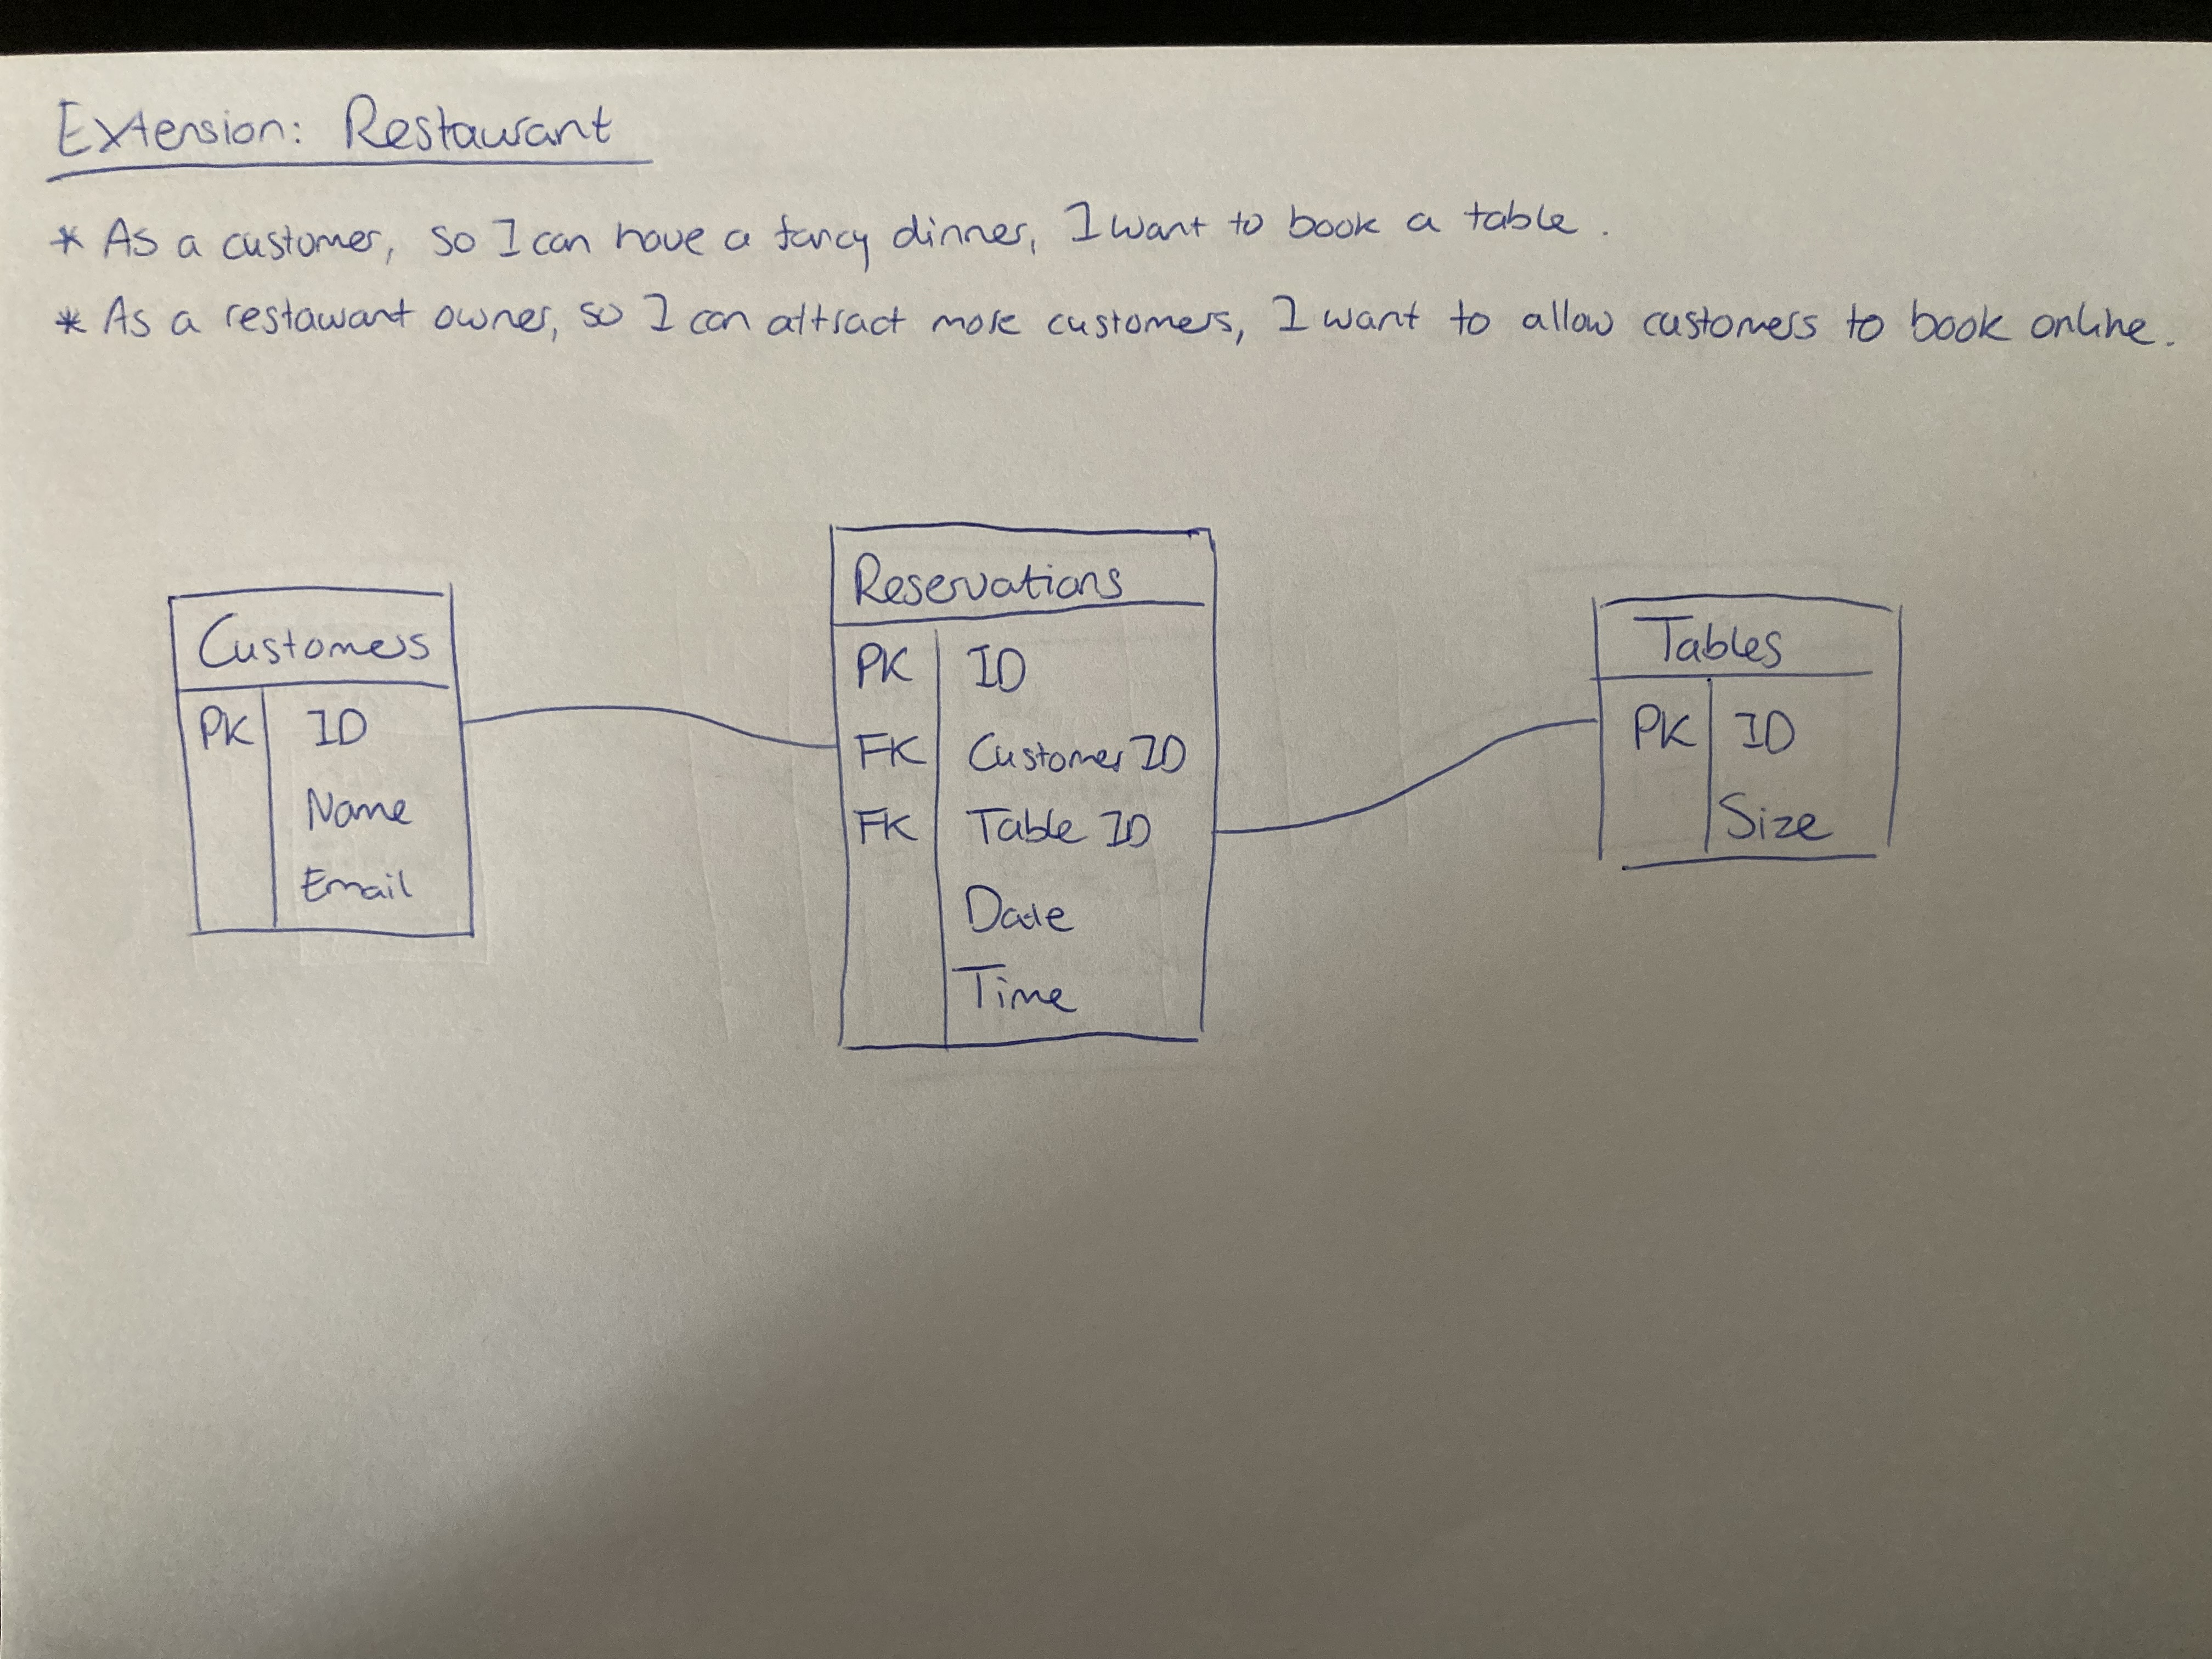 Extension: Restaurant
* As a customer, so I can have a fancy dinner, I want to book a table.
* As a restaurant owner, so I can attract more customers, I want to allow customers to book online.
Customers
PK ID
Name
Email
Reservations
PK ID
FK Customer ID
FK Table ID
Date
Time
Tables
PK ID
Size